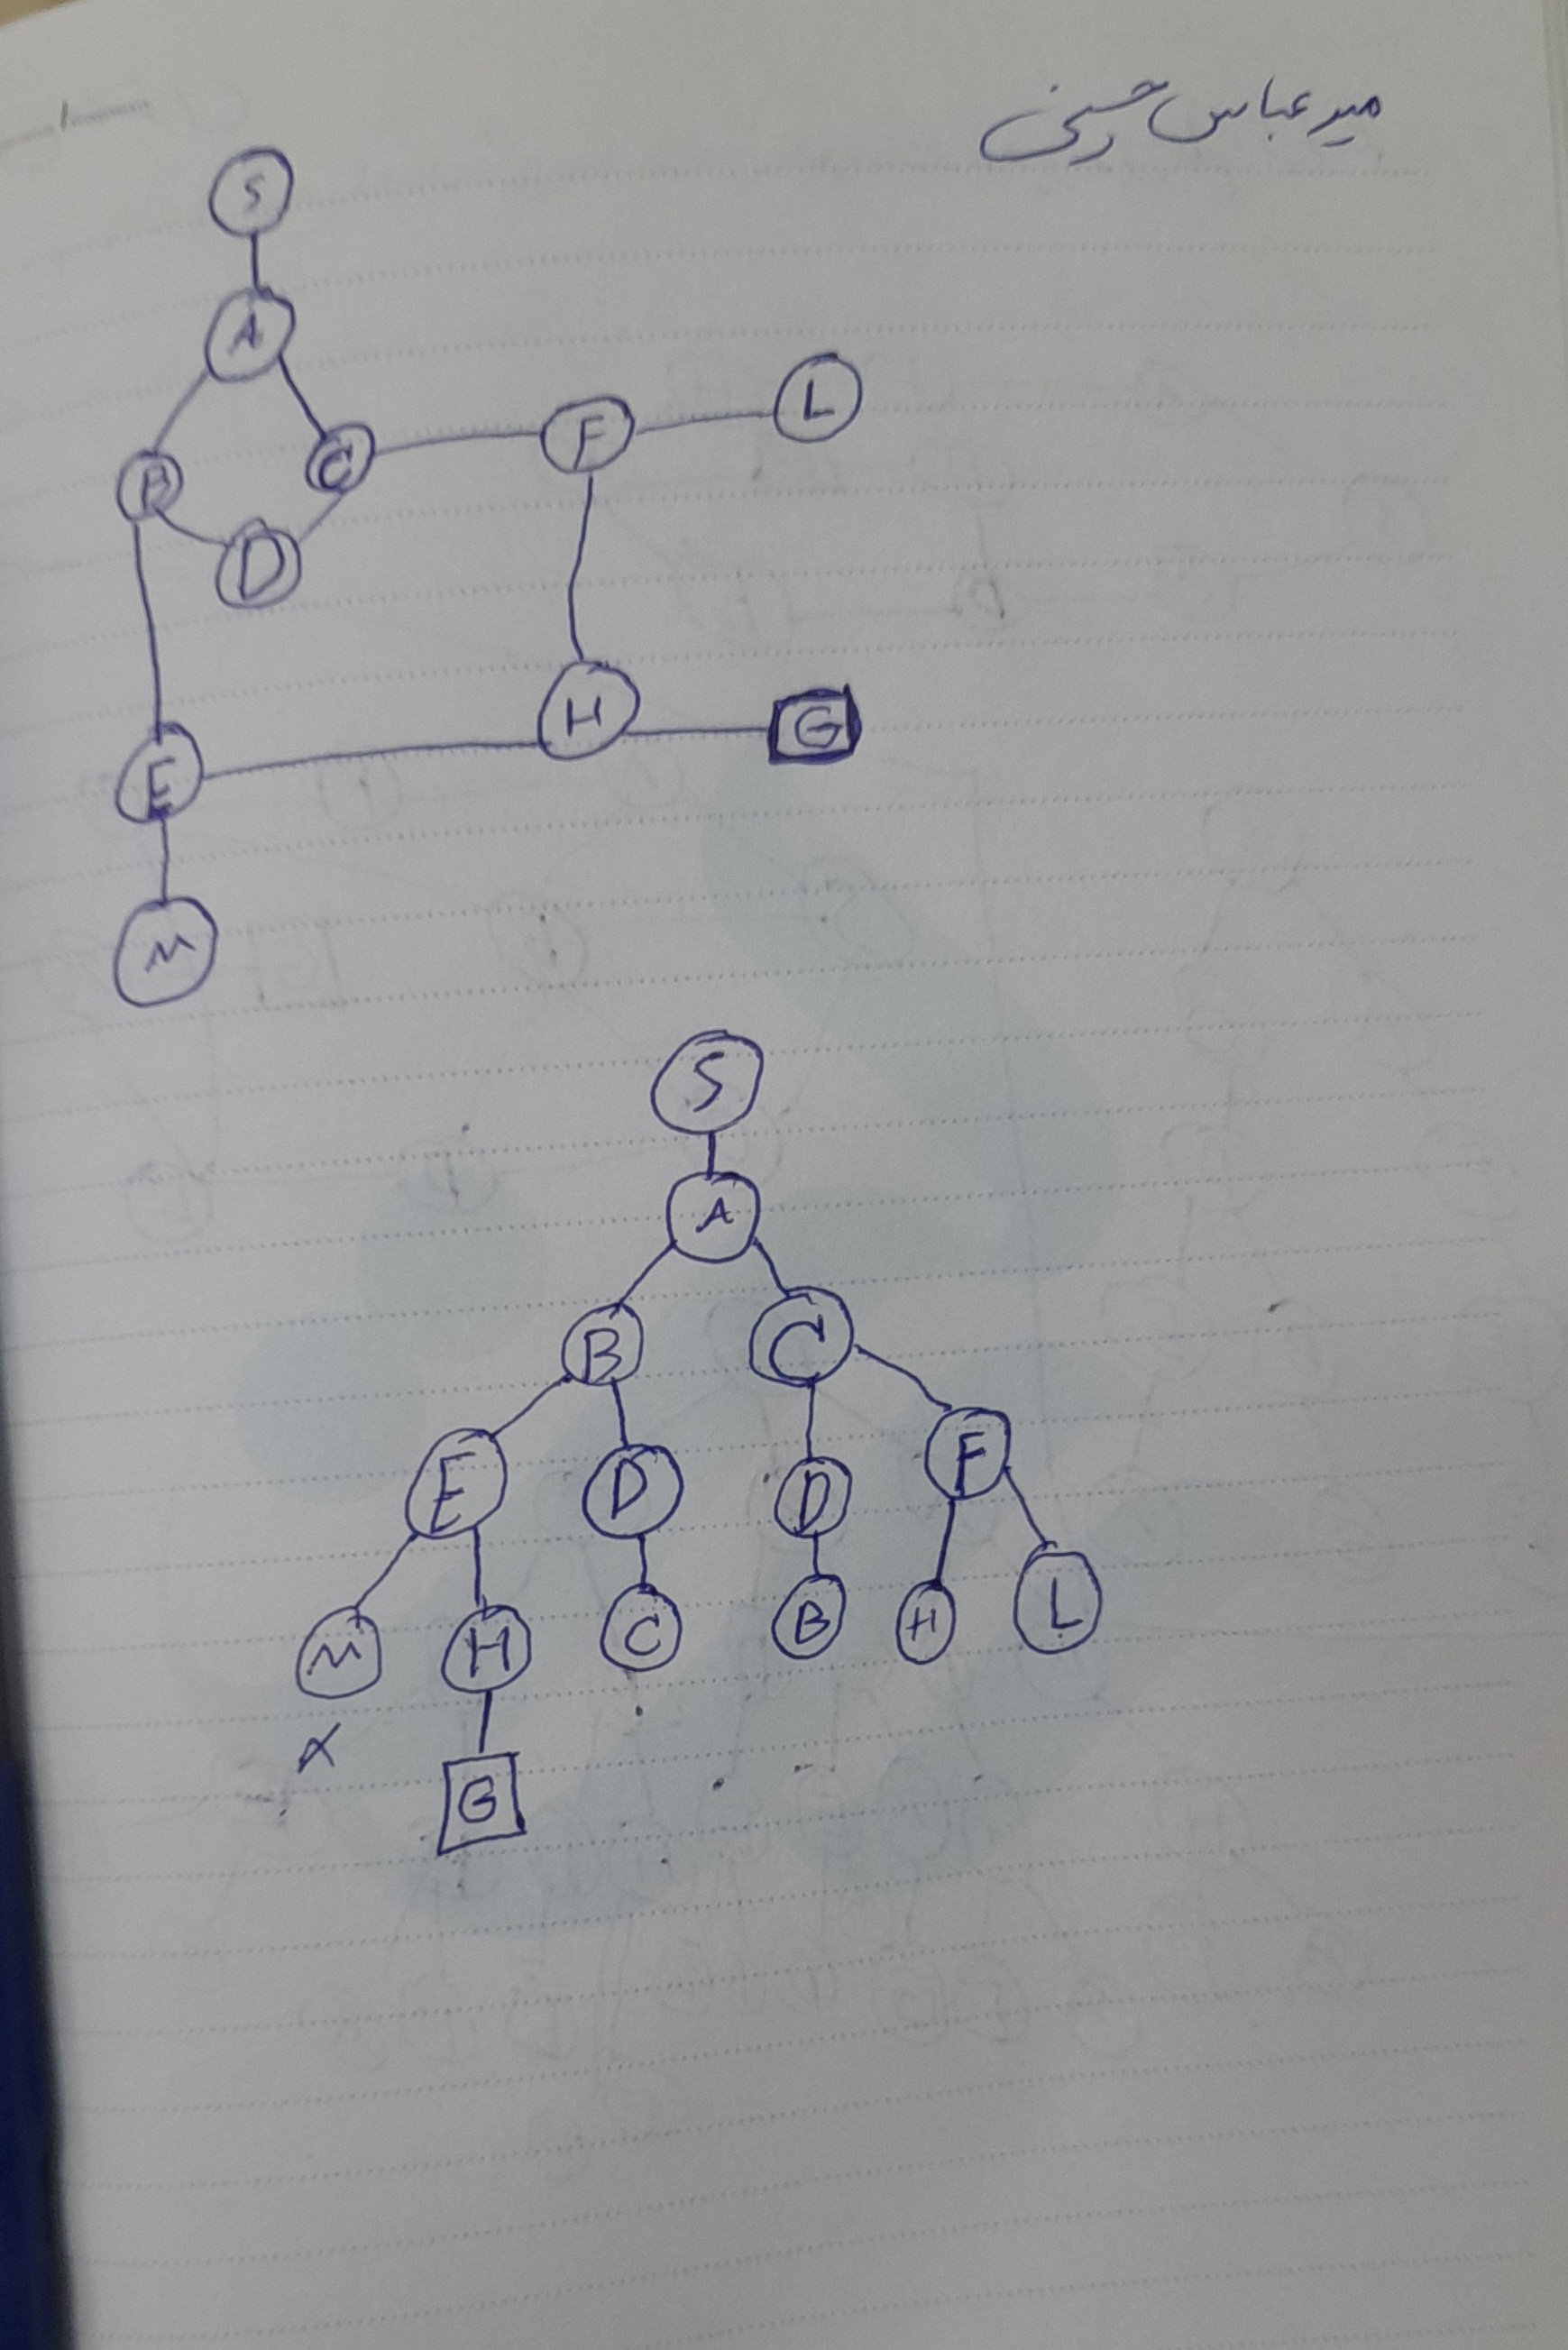 میرعباس حسنی
S
A
B C F L
D
E H G
M
S
A
B C
E D D F
M H C B H L
X
G